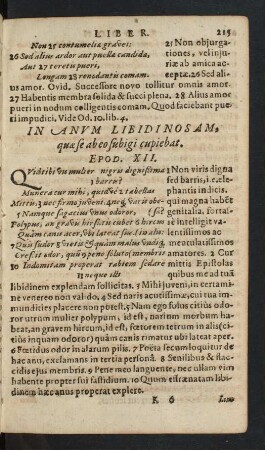 LIBER. 215
Non 25 contumeliæ graves:
26 Sed alius ardor aut puellæ candidæ,
Aut 27 teretis pueri,
Longam 28 renodantis comam.
25 Non objurga-
tiones, vel injuriæ
ab amica ac-
ceptæ. 26 Sed ali-
us amor. Ovid. Successore novo tollitur omnis amor.
27 Habentis membra solida & succi plena. 28 Alius amor
pueri in nodum colligentis comam. Quod faciebant pue-
ri impudici. Vide Od. 10. lib. 4.
IN ANUM LIBIDINOSAM,
quæ se ab eo subigi cupiebat.
EPOD. XII.
Quid tibi vis mulier nigris dignissima
1 barris?
Munera cur mihi, quidve 2 tabellas
Mittis, 3 nec firmo juveni, 4 neq; naris obe-
5 Namque sagacius unus odoror,
Polypus, an gravis hirsutis cubet 6 hircus
Quàm canis acer, ubi lateat sus. in alis:
7 Quis sudor 8 vietis & quàm malus undiq;
Crescit odor, quũ 9 pene soluto
10 Indomitam properat rabiem sedare
1 Non viris digna
sed barris, i. ele-
phantis indici.
qui magna habẽt
genitalia.
te intelligit va-
lentissimos ac
mentulatissimos
amatores. 2 Cur
mittis Epistolas
quibus me ad tuã
libidinem explendam sollicitas. 3 Mihi juveni, in certami-
ne venereo non valido. 4 Sed naris acutissima, cui tua im-
mundicies placere non potest. 5 Nam ego solus citius odo-
ror utrum mulier polypum, id est, narium morbum habe-
at, an gravem hircum, id est, fœtorem tetrum in alis (ci-
tius inquam odoror) quàm canis rimatur ubi lateat aper.
6 Fœtidus odor in alarum pilis. 7 Poëta secum loquitur de
hac anu, exclamans in tertia personâ. 8 Senilibus & flac-
cidis ejus membris. 9 Pene meo languente, nec ullam vim
habente propter sui fastidium. 10 Quum effrænatam libi-
dinem hæc anus properat explere.
K 6